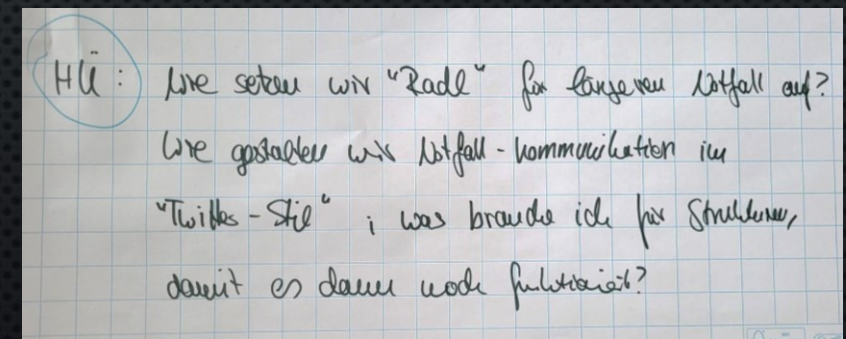 HÜ: Wie setzen wir "Radl" für längeren Notfall auf?
Wie gestalten wir Notfall-Kommunikation im
"Twitter-Stil" ; was brauche ich für Strukturen,
damit es dann noch funktioniert?